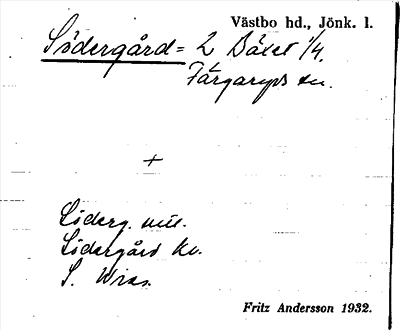 Västbo hd., Jönk. l.
Södergård = 2 Båxet 1/4.
Färgaryds sn.
+
Söderg. mtl.
Södergård Kv.
S. Wiss.
Fritz Andersson 1932.